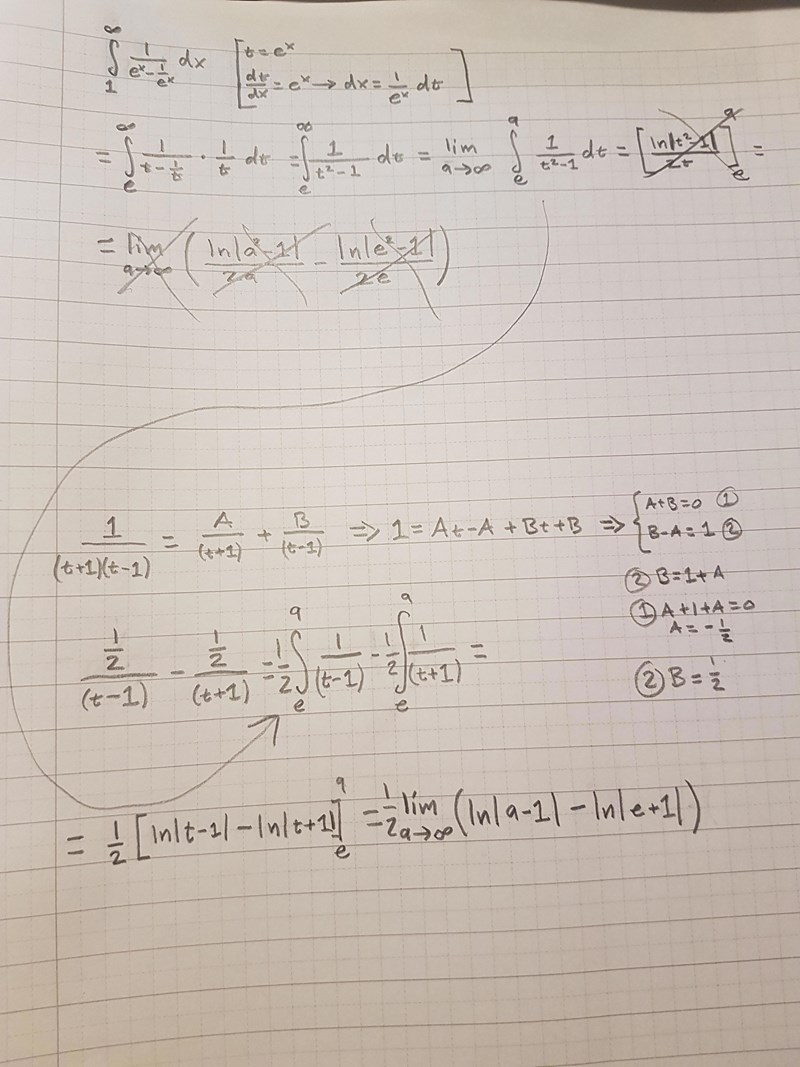 ∫₁^∞ 1/(eˣ - 1/eˣ) dx [t = eˣ
dt/dx = eˣ → dx = 1/eˣ dt]
= ∫ₑ^∞ 1/(t - 1/t) · 1/t dt = ∫ₑ^∞ 1/(t²-1) dt = lim a→∞ ∫ₑ^a 1/(t²-1) dt = [ln|t²-1|/2t]ₑ^a =
= lim a→∞ (ln|a²-1|/2a - ln|e²-1|/2e)
1/((t+1)(t-1)) = A/(t+1) + B/(t-1) ⇒ 1 = At-A+Bt+B ⇒ { A+B=0 ①
B-A=1 ②
② B=1+A
① A+1+A=0
A = -1/2
② B = 1/2
(1/2)/(t-1) - (1/2)/(t+1) = 1/2 ∫ₑ^a 1/(t-1) - 1/2 ∫ₑ^a 1/(t+1) =
= 1/2 [ln|t-1| - ln|t+1|]ₑ^a = 1/2 lim a→∞ (ln|a-1| - ln|e+1|)